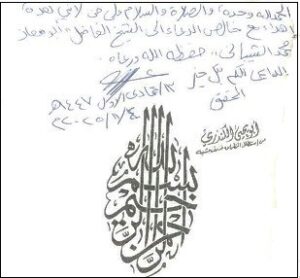 الحمد لله وحده، والصلاة والسلام على من لا نبي بعده
أهدي مع خالص الدعاء إلى الشيخ الفاضل، أبو معاذ
محمد الشيباني، حفظه الله ورعاه.
الداعي لكم بكل خير
المحقق
١٣/جمادى الأول/١٤٤٧هـ
٤/١١/٢٠٢٥م
أبو يحيى الكندري
بسم الله الرحمن الرحيم